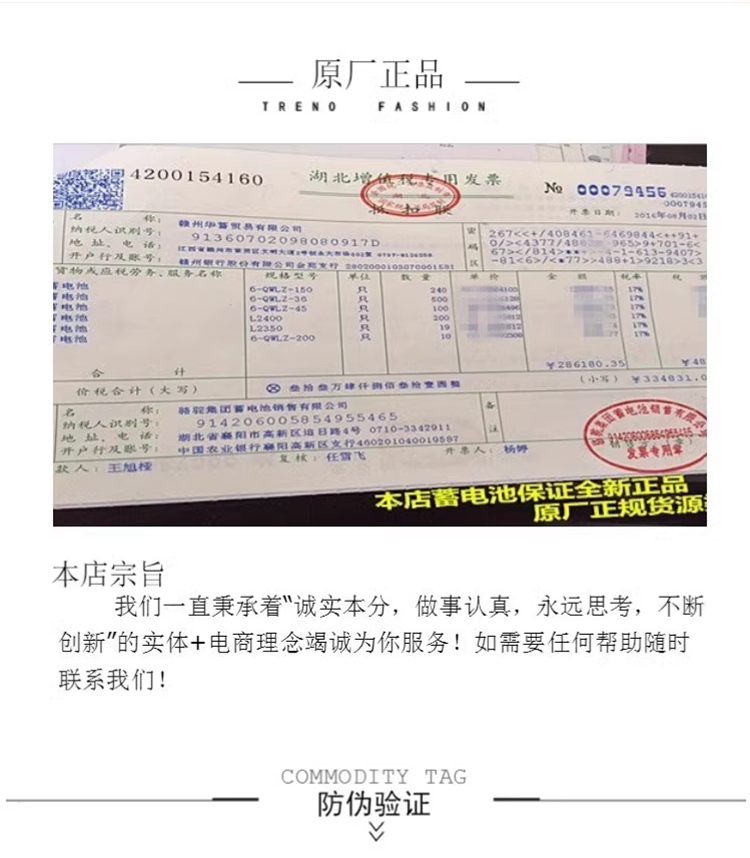 原厂正品
TRENO FASHION
4200154160
湖北增值税专用发票
№ 00079456
开票日期: 2016年08月02日
名 称: 赣州华蓄贸易有限公司
纳税人识别号: 91360702098080917D
地 址、电 话:
开户行及账号:
密码区
货物或应税劳务、服务名称 规格型号 单位 数 量 单 价 金 额 税率 税
蓄电池 6-QWLZ-150 只 240 17%
蓄电池 6-QWLZ-36 只 500 17%
蓄电池 6-QWLZ-45 只 100 17%
蓄电池 L2400 只 200 17%
蓄电池 L2350 只 19 17%
6-QWLZ-200 只 10 17%
合 计 ¥286180.35
价税合计(大写) ⊗ 叁拾叁万肆仟捌佰叁拾壹圆整 (小写) ¥334831.0
名 称: 骆驼集团蓄电池销售有限公司
纳税人识别号: 914206005854955465
地 址、电 话: 湖北省襄阳市高新区追日路4号 0710-3342911
开户行及账号: 中国农业银行襄阳高新区支行
备注
款人: 王旭桠 复核: 任雪飞 开票人: 杨婷
发票专用章
本店蓄电池保证全新正品
原厂正规货源
本店宗旨
我们一直秉承着“诚实本分，做事认真，永远思考，不断
创新”的实体+电商理念竭诚为你服务！如需要任何帮助随时
联系我们！
COMMODITY TAG
防伪验证